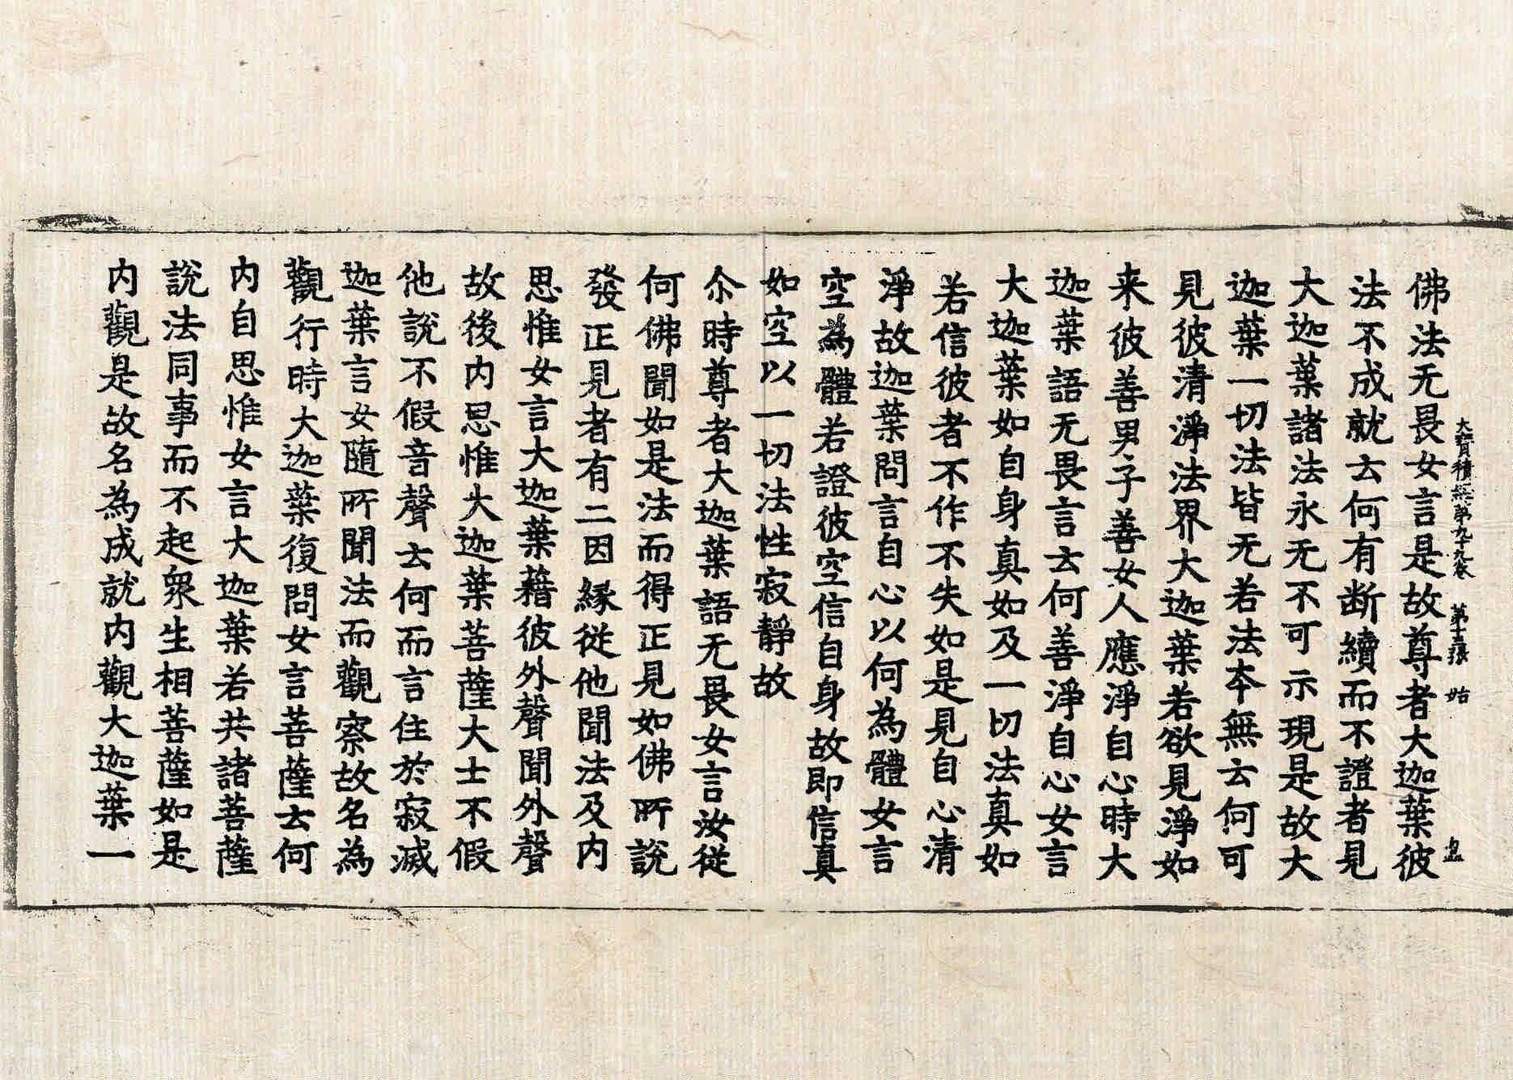 大寶積經第九十九卷 第 張 始
佛法无畏女言是故尊者大迦葉彼
法不成就云何有断續而不證者見
大迦葉諸法永无不可示現是故大
迦葉一切法皆无若法夲無云何可
見彼清淨法界大迦葉若欲見淨如
来彼善男子善女人應淨自心時大
迦葉語无畏言云何善淨自心女言
大迦葉如自身真如及一切法真如
若信彼者不作不失如是見自心清
淨故迦葉問言自心以何為體女言
空為體若證彼空信自身故即信真
如空以一切法性寂靜故
尒時尊者大迦葉語无畏女言汝從
何佛聞如是法而得正見如佛所說
發正見者有二因縁從他聞法及内
思惟女言大迦葉藉彼外聲聞外聲
故後内思惟大迦葉菩薩大士不假
他說不假音聲云何而言住於寂滅
迦葉言女隨所聞法而觀察故名為
觀行時大迦葉復問女言菩薩云何
内自思惟女言大迦葉若共諸菩薩
說法同事而不起衆生相菩薩如是
内觀是故名為成就内觀大迦葉一